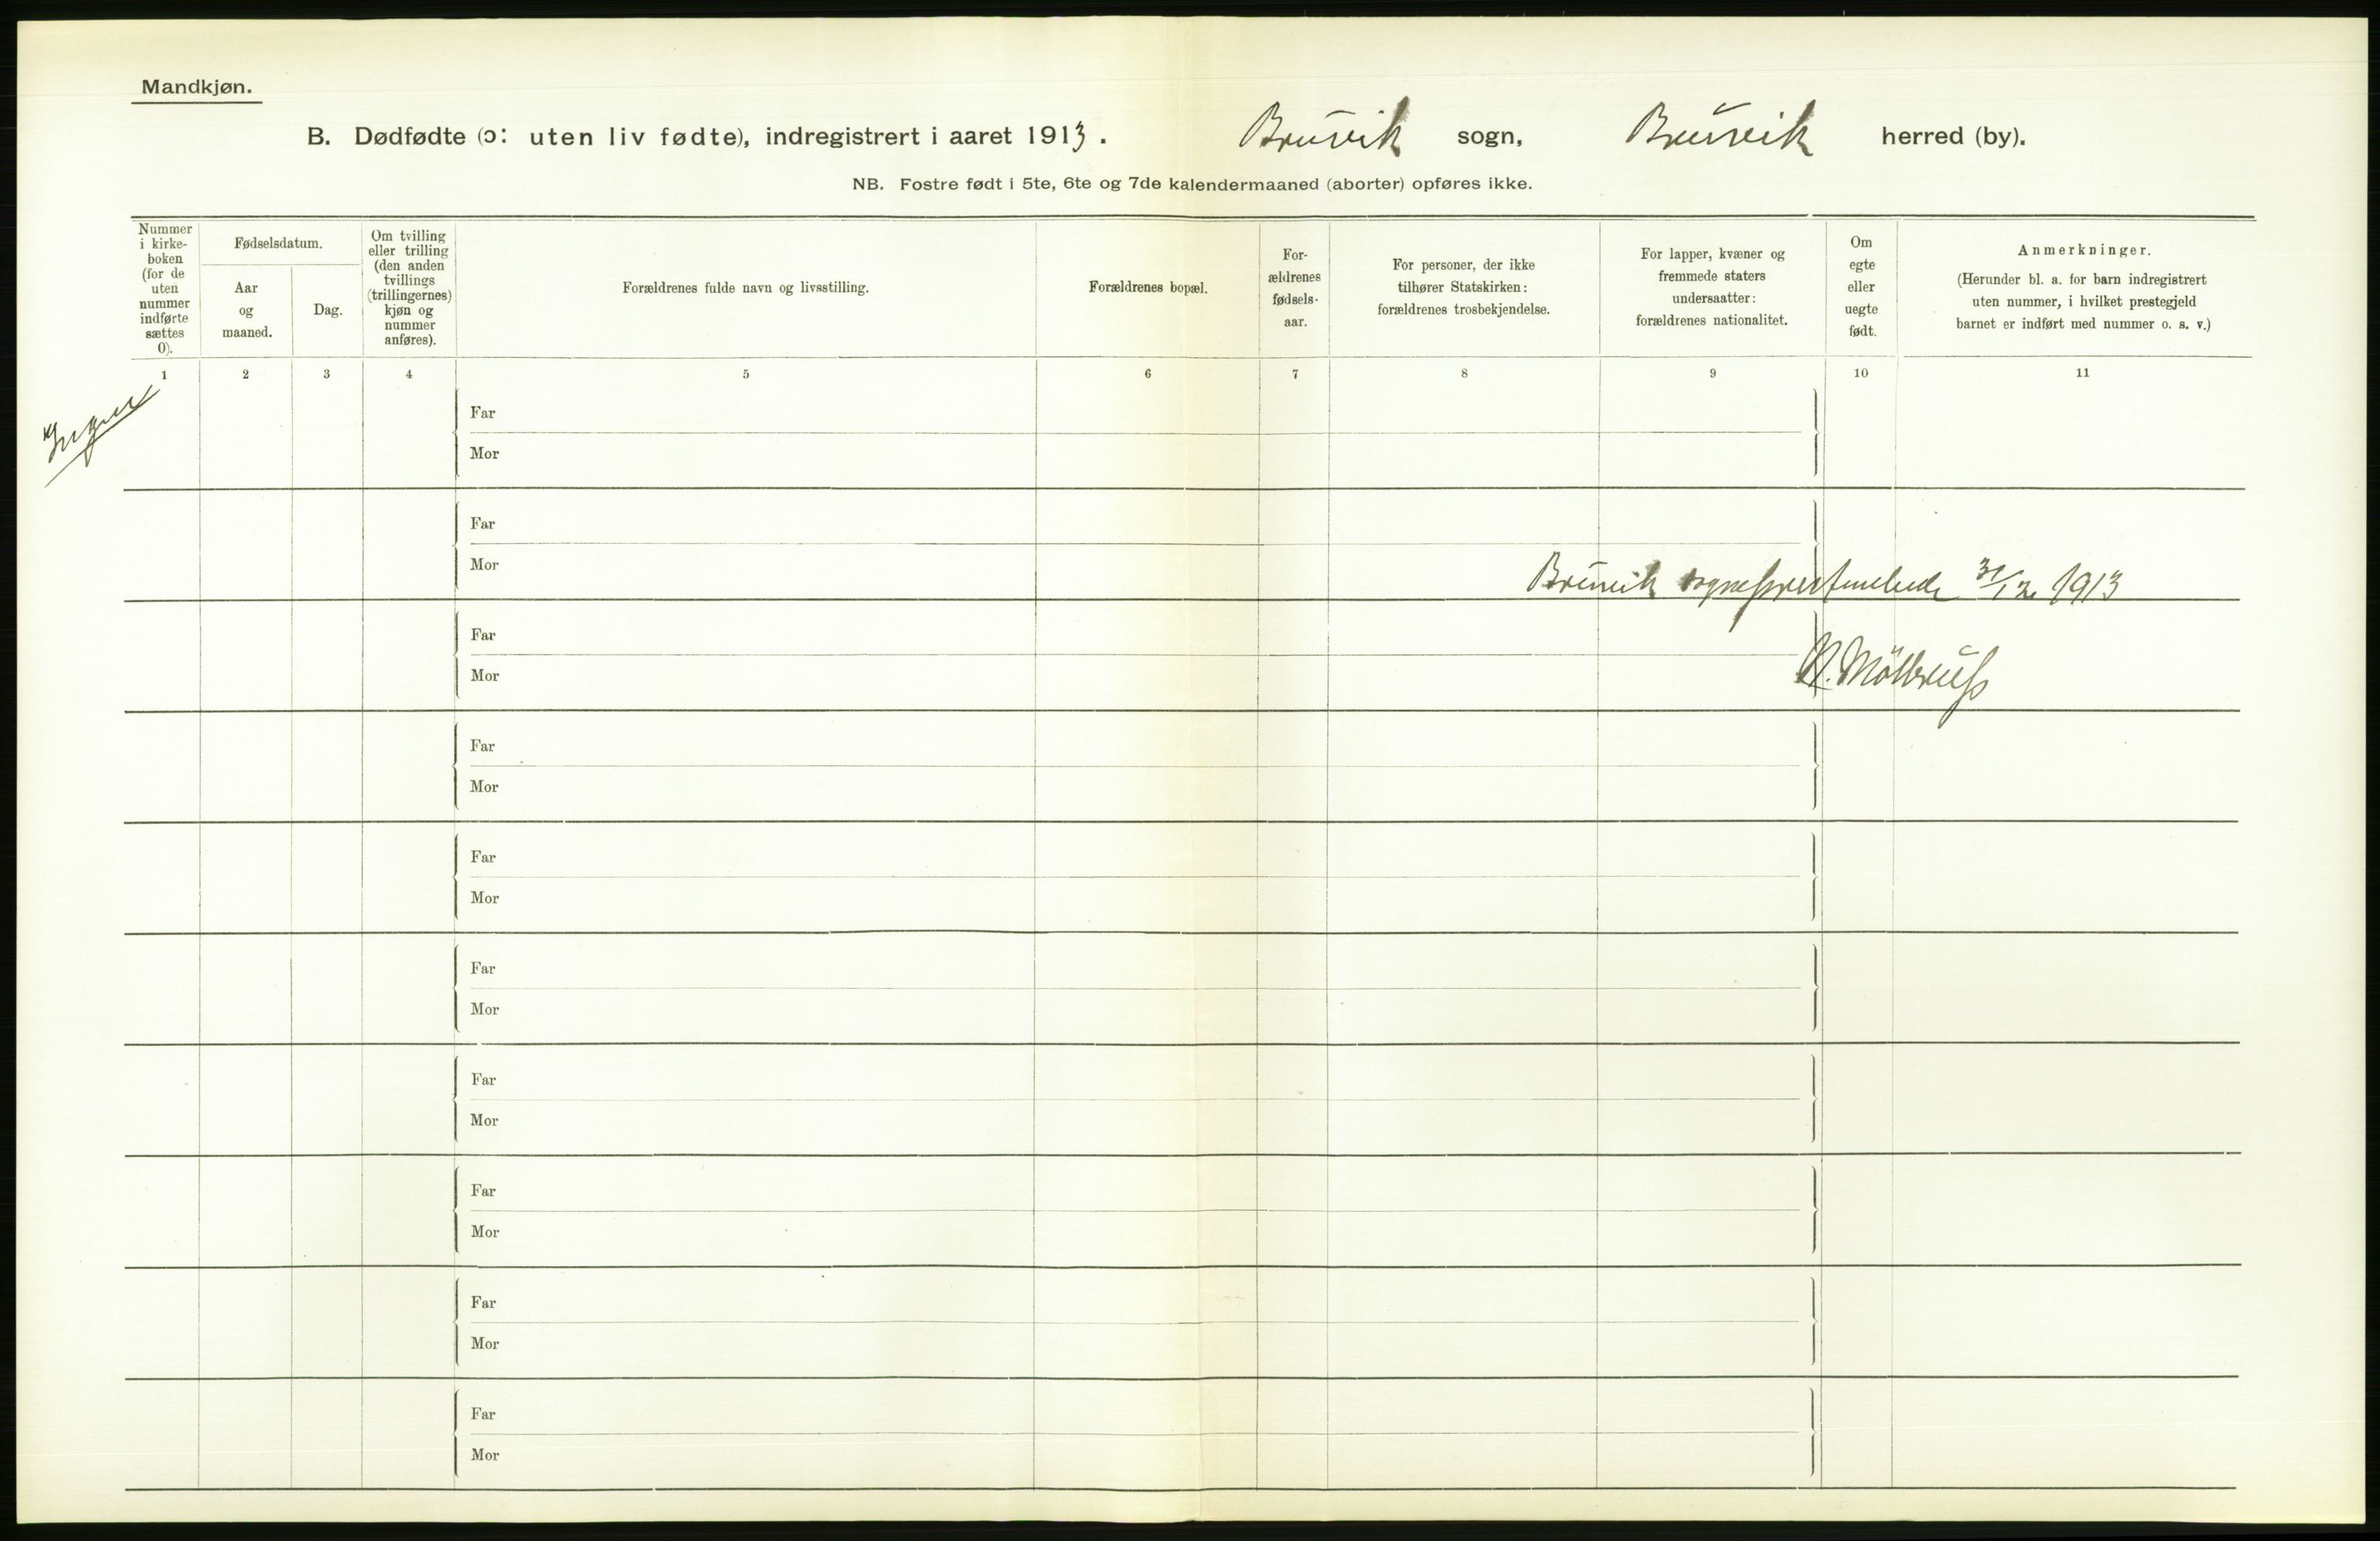 Mandkjøn.
B. Dødfødte (ɔ: uten liv fødte), indregistrert i aaret 1913. Bruvik sogn, Bruvik herred (by).
NB. Fostre født i 5te, 6te og 7de kalendermaaned (aborter) opføres ikke.
Nummer
i kirke-
boken
(for de
uten
nummer
indførte
sættes
0).
Fødselsdatum.
Aar
og
maaned.
Dag.
Om tvilling
eller trilling
(den anden
tvillings
(trillingernes)
kjøn og
nummer
anføres).
Forældrenes fulde navn og livsstilling.
Forældrenes bopæl.
For-
ældrenes
fødsels-
aar.
For personer, der ikke
tilhører Statskirken:
forældrenes trosbekjendelse.
For lapper, kvæner og
fremmede staters
undersaatter:
forældrenes nationalitet.
Om
egte
eller
uegte
født.
Anmerkninger.
(Herunder bl. a. for barn indregistrert
uten nummer, i hvilket prestegjeld
barnet er indført med nummer o. s. v.)
1 2 3 4 5 6 7 8 9 10 11
Ingen
Far
Mor
Far
Mor
Bruvik sogneprestembede 31/12 1913
Far
Mor
Far
Mor
Far
Mor
Far
Mor
Far
Mor
Far
Mor
Far
Mor
Far
Mor